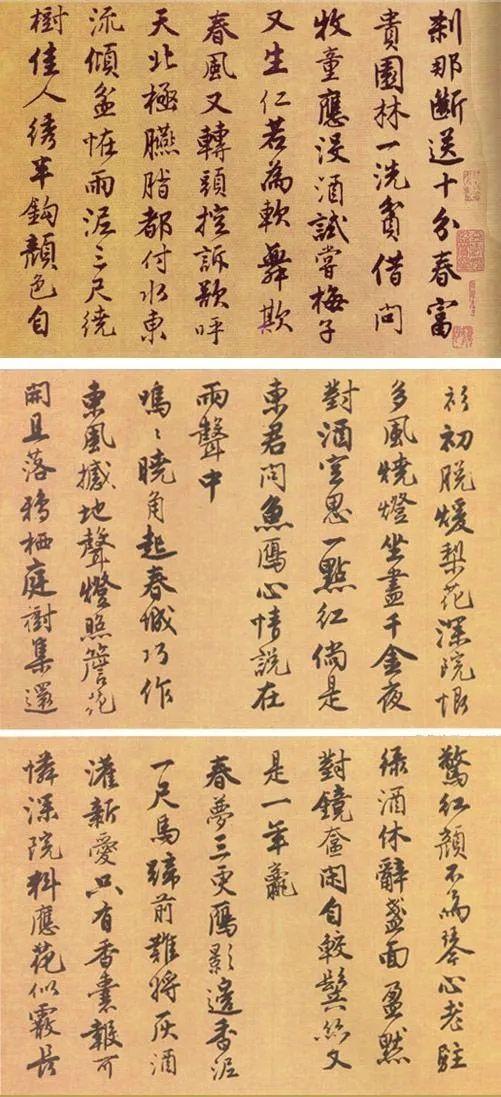 刹那斷送十分春富
貴園林一洗貧借問
牧童應没酒試嘗梅子
又生仁若為軟舞欺
春風又轉頭控訴歎呼
天北極臙脂都付水東
流傾盆怪雨泥三尺繞
樹佳人绣半鈎顏色自
衫初脱煖梨花深院恨
多風燒燈坐盡千金夜
對酒空思一點紅倘是
東君問魚鴈心情說在
雨聲中
嗚〻曉角起春城巧作
東風撼地聲燈照簷花
開且落鴉栖庭樹集還
驚紅顏不為琴心老駐
绿酒休辭盞面盈黙
對鏡奩閑自較鬢絲又
是一年虧
春夢三更鴈影邊香泥
一尺馬蹄前難將灰酒
灌新愛只有香囊報可
憐深院料應花似霰長